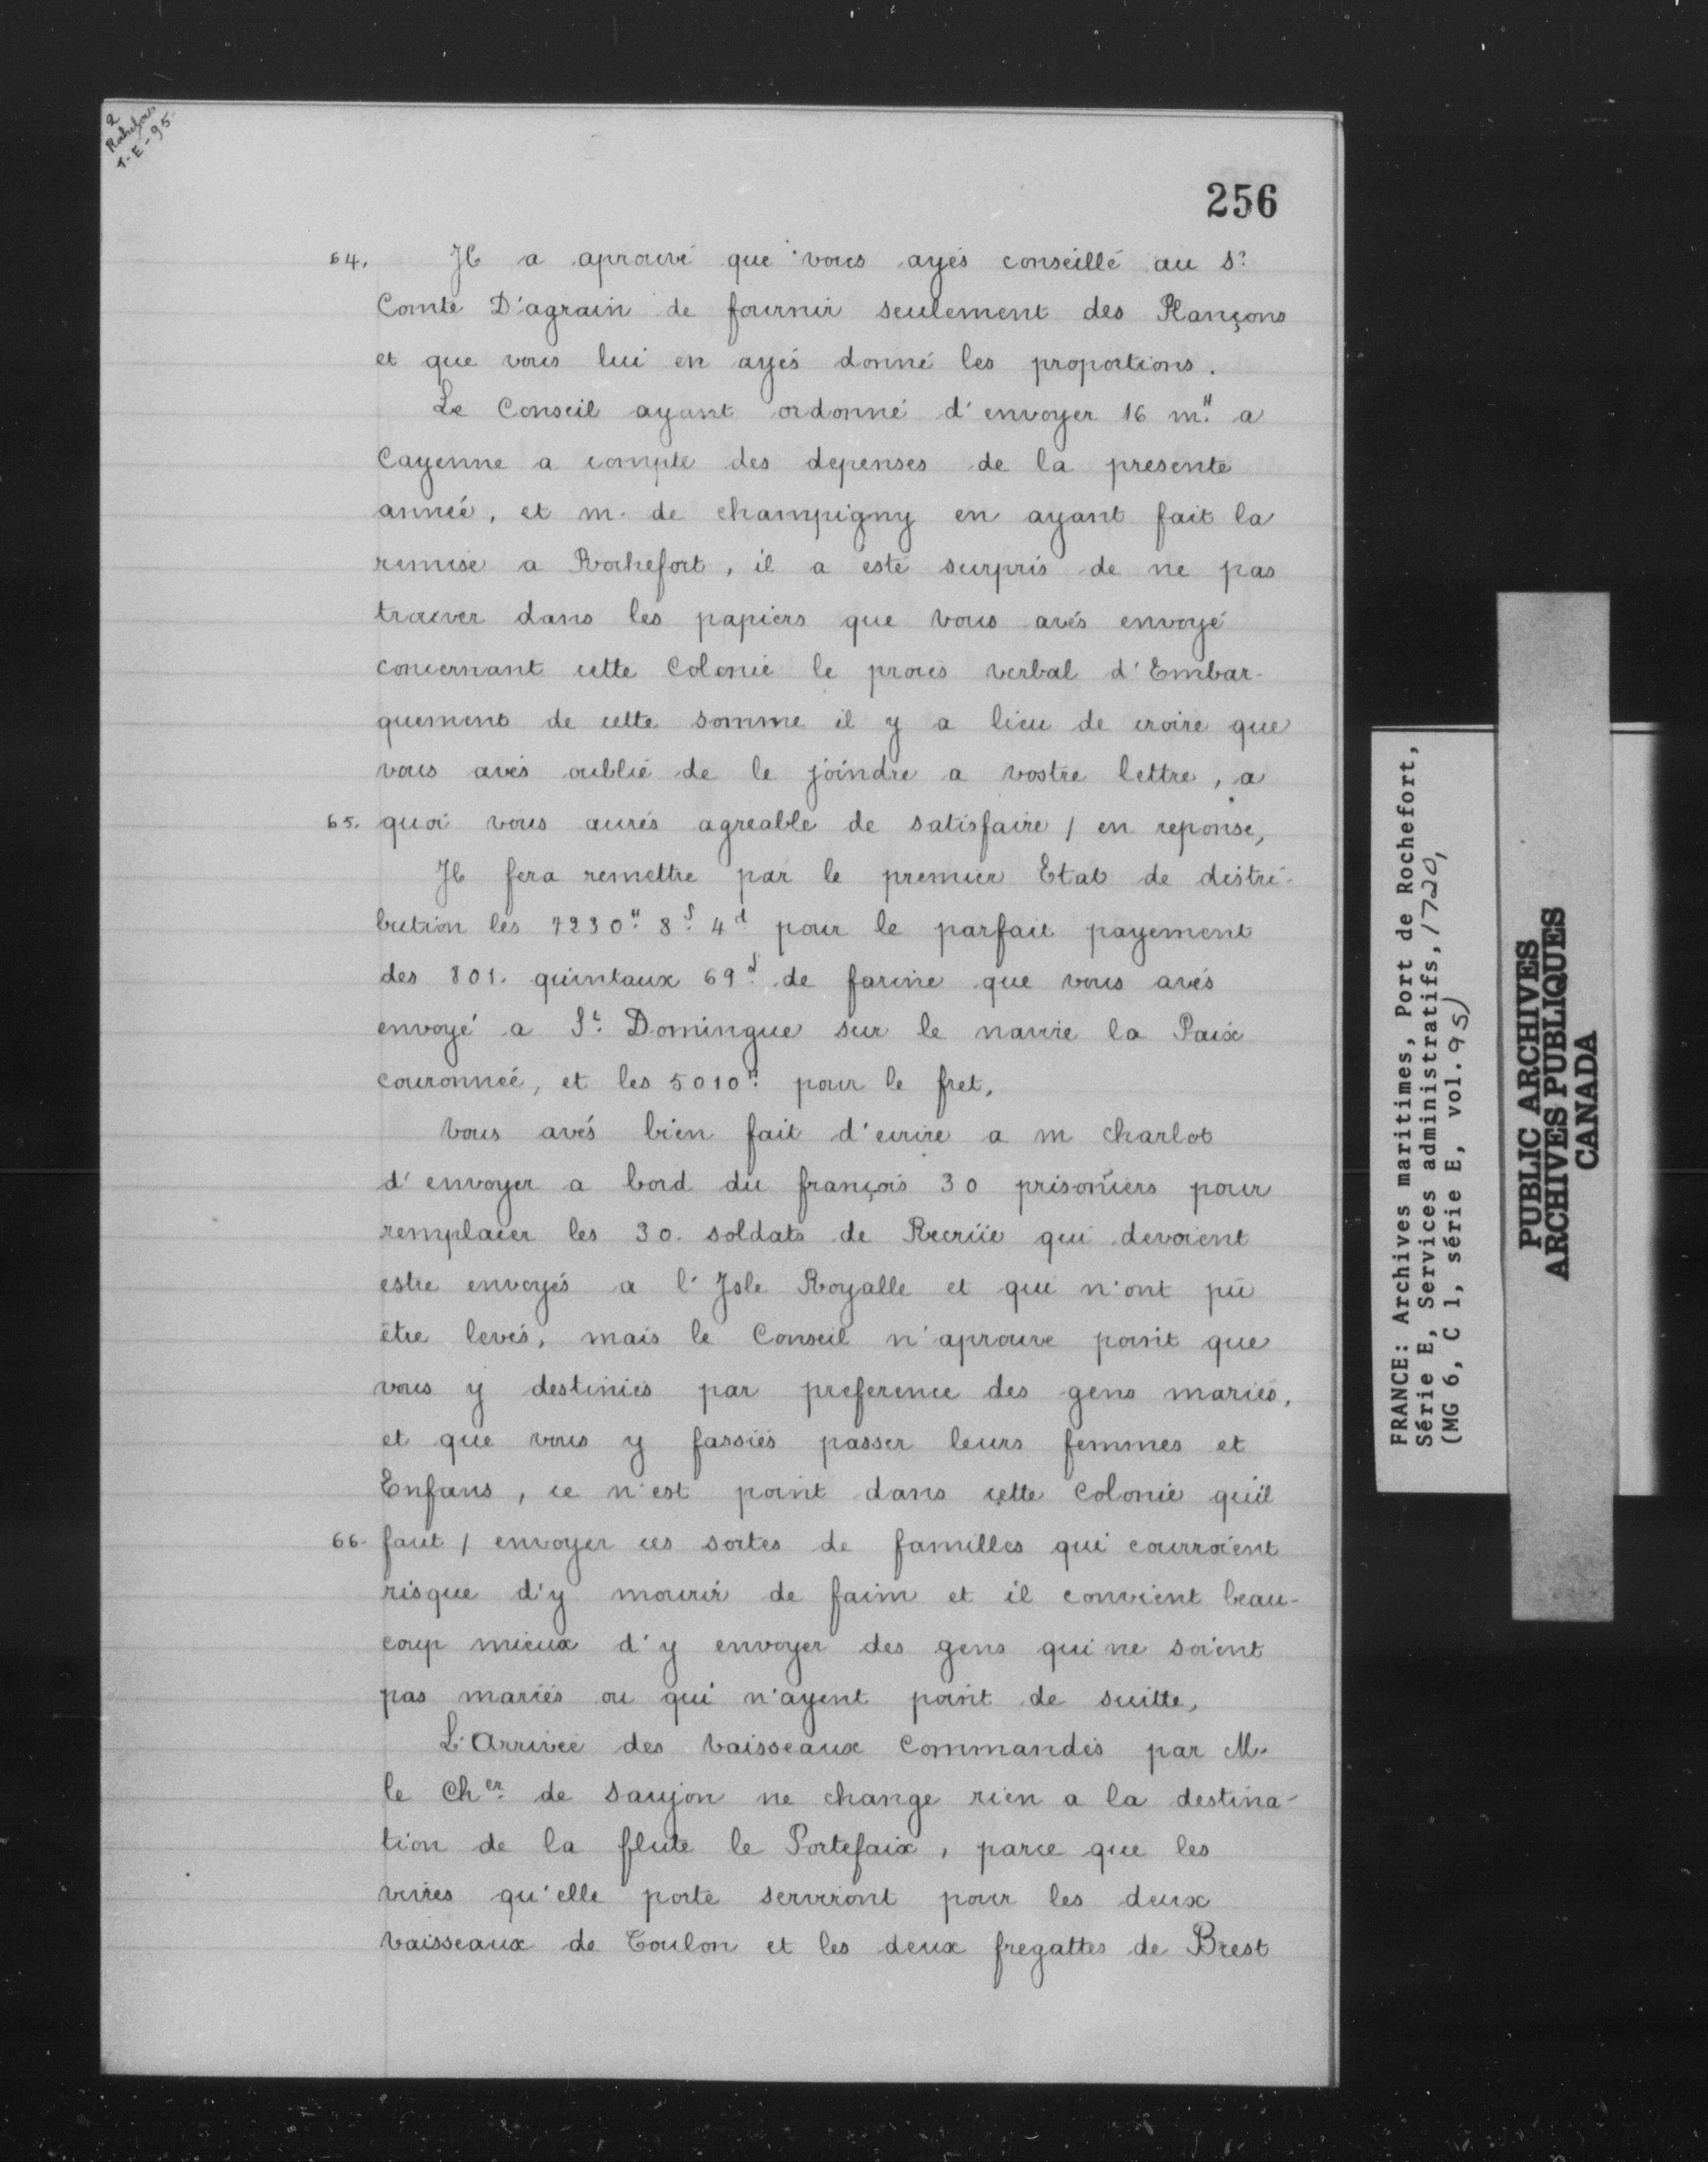 2
Rochefort
1-E-95.
256
64. Il a aprouvé que vous ayés conseillé au Sr.
Comte D'agrain de fournir seulement des Plançons
et que vous lui en ayés donné les proportions.
Le Conseil ayant ordonné d'envoyer 16 m.# a
Cayenne a compte des depenses de la presente
année, et m. de champigny en ayant fait la
remise a Rochefort, il a esté surpris de ne pas
trouver dans les papiers que vous avés envoyé
concernant cette Colonie le procés verbal d'Embar-
quement de cette somme il y a lieu de croire que
vous avés oublié de le joindre a vostre lettre, a
65. quoi vous aurés agreable de satisfaire / en reponse,
Il fera remettre par le premier Etat de distri-
bution les 7230.# 8.s 4.d pour le parfait payement
des 801. quintaux 69.d de farine que vous avés
envoyé a St. Domingue sur le navire la Paix
couronnée, et les 5010.# pour le fret,
Vous avés bien fait d'ecrire a m charlot
d'envoyer a bord du françois 30 prisoñiers pour
remplacer les 30. soldats de Recrüe qui devoient
estre envoyés a l'Isle Royalle et qui n'ont pû
être levés, mais le Conseil n'aprouve point que
vous y destiniés par preference des gens mariés,
et que vous y fassiés passer leurs femmes et
Enfans, ce n'est point dans cette colonie quil
66. faut / envoyer ces sortes de familles qui courroient
risque d'y mourir de faim et il convient beau-
coup mieux d'y envoyer des gens qui ne soient
pas mariés ou qui n'ayent point de suitte,
L'Arrivée des Vaisseaux Commandés par M.
le Cher. de Saujon ne change rien a la destina-
tion de la flute le Portefaix, parce que les
vivres qu'elle porte serviront pour les deux
Vaisseaux de Toulon et les deux fregattes de Brest
FRANCE: Archives maritimes, Port de Rochefort,
Série E, Services administratifs, 1720,
(MG 6, C 1, série E, vol. 95)
PUBLIC ARCHIVES
ARCHIVES PUBLIQUES
CANADA